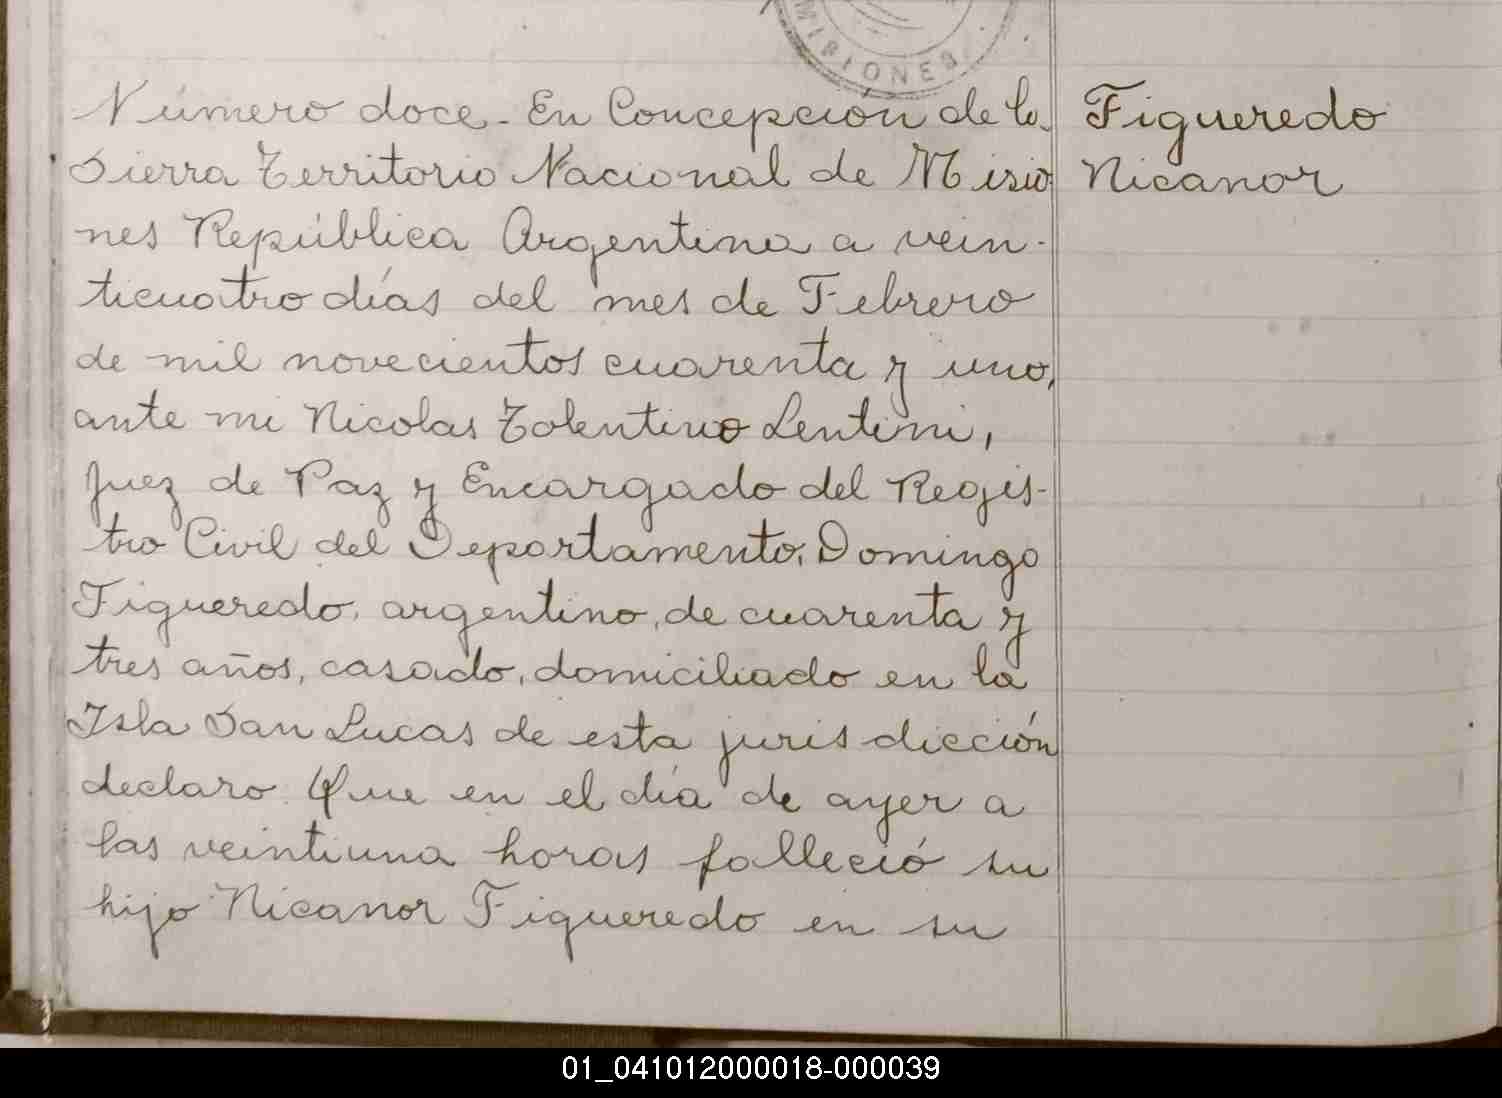 MISIONES
Número doce. En Concepción de la
Sierra Territorio Nacional de Misio
nes República Argentina a vein-
ticuatro días del mes de Febrero
de mil novecientos cuarenta y uno,
ante mi Nicolas Tolentino Lentini,
Juez de Paz y Encargado del Regis-
tro Civil del Departamento, Domingo
Figueredo, argentino, de cuarenta y
tres años, casado, domiciliado en la
Isla San Lucas de esta jurisdicción
declaro: Que en el día de ayer a
las veintiuna horas falleció su
hijo Nicanor Figueredo en su
Figueredo
Nicanor
01_041012000018-000039